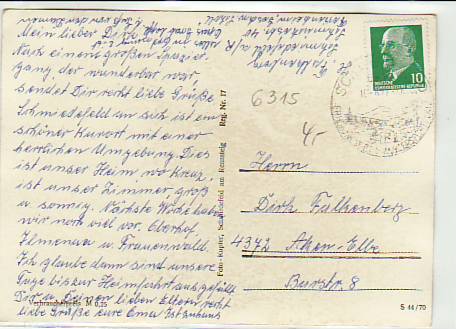 Mein lieber Dirk!
Nach einem großen Spazier-
gang, der wunderbar war,
sendet Dir recht liebe Grüße
Schmiedefeld an sich ist ein
schöner Kurort mit einer
herrlichen Umgebung. Dies
ist unser Heim, wo Kreuz,
ist unser Zimmer groß
u. sonnig. Nächste Woche haben
wir noch viel vor. Oberhof
Ilmenau u. Frauenwald.
Ich glaube dann sind unsere
Tage bis zur Heimfahrt ausgefüllt
Dir u. Deinen lieben Eltern recht
liebe Grüße eure Oma
Verbraucherpreis M 0,25
Foto-Kupfer, Schmiedefeld am Rennsteig Reg. Nr. 17
Falkenberg
6315
4,-
DEUTSCHE
DEMOKRATISCHE REPUBLIK
10
Herrn
Dirk Falkenberg
4372 Aken-Elbe
Burstr. 8
S 44/70